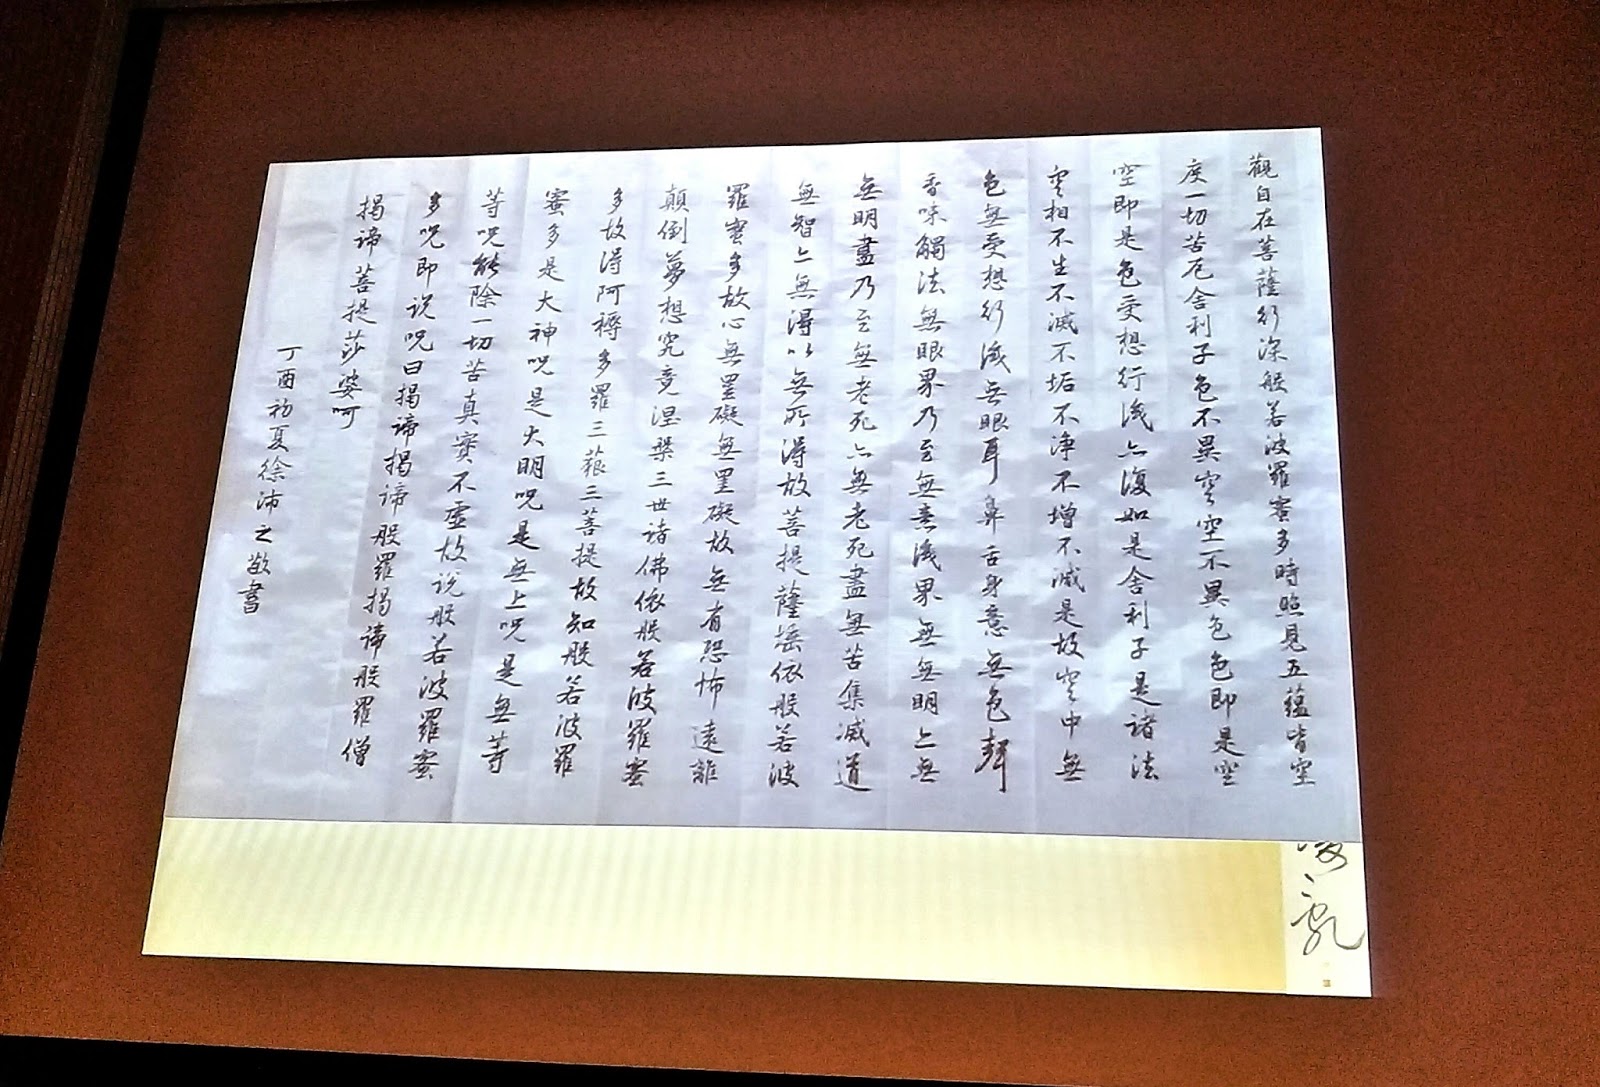 觀自在菩薩行深般若波羅蜜多時照見五蘊皆空
度一切苦厄舍利子色不異空空不異色色即是空
空即是色受想行識亦復如是舍利子是諸法
空相不生不滅不垢不淨不增不減是故空中無
色無受想行識無眼耳鼻舌身意無色聲
香味觸法無眼界乃至無意識界無無明亦無
無明盡乃至無老死亦無老死盡無苦集滅道
無智亦無得以無所得故菩提薩埵依般若波
羅蜜多故心無罣礙無罣礙故無有恐怖遠離
顛倒夢想究竟涅槃三世諸佛依般若波羅蜜
多故得阿耨多羅三藐三菩提故知般若波羅
蜜多是大神呪是大明呪是無上呪是無等
等呪能除一切苦真實不虛故説般若波羅蜜
多呪即説呪曰揭諦揭諦般羅揭諦般羅僧
揭諦菩提莎婆呵
丁酉初夏徐沛之敬書